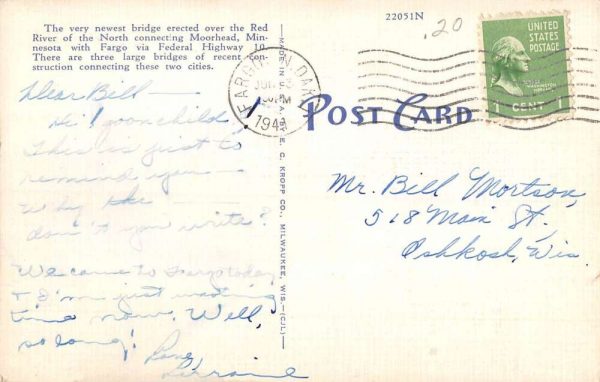 The very newest bridge erected over the Red
River of the North connecting Moorhead, Min-
nesota with Fargo via Federal Highway 10.
There are three large bridges of recent con-
struction connecting these two cities.
22051N
.20
UNITED
STATES
POSTAGE
1 CENT 1
FARGO N. DAK.
194
POST CARD
MADE IN U.S.A. BY E. C. KROPP CO., MILWAUKEE, WIS.—(C/L)—
Dear Bill —
Hi! goonchild,
This is just to
remind you —
Why the
don't you write?
We came to Fargo today
+ I'm just wasting
time now. Well,
so long!
Love,
Lorraine
Mr. Bill Mortson,
518 Main St,
Oshkosh, Wis.